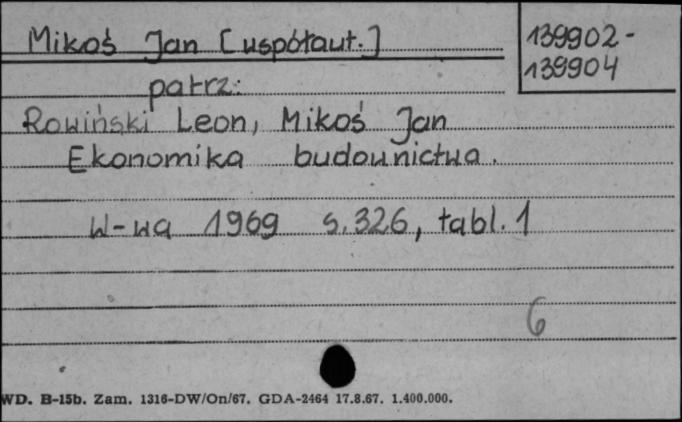 Mikoś Jan [współaut.]
139902-
139904
patrz:
Rowiński Leon, Mikoś Jan
Ekonomika budownictwa.
W-wa 1969 s.326, tabl. 1
6
WD. B-15b. Zam. 1316-DW/On/67. GDA-2464 17.8.67. 1.400.000.